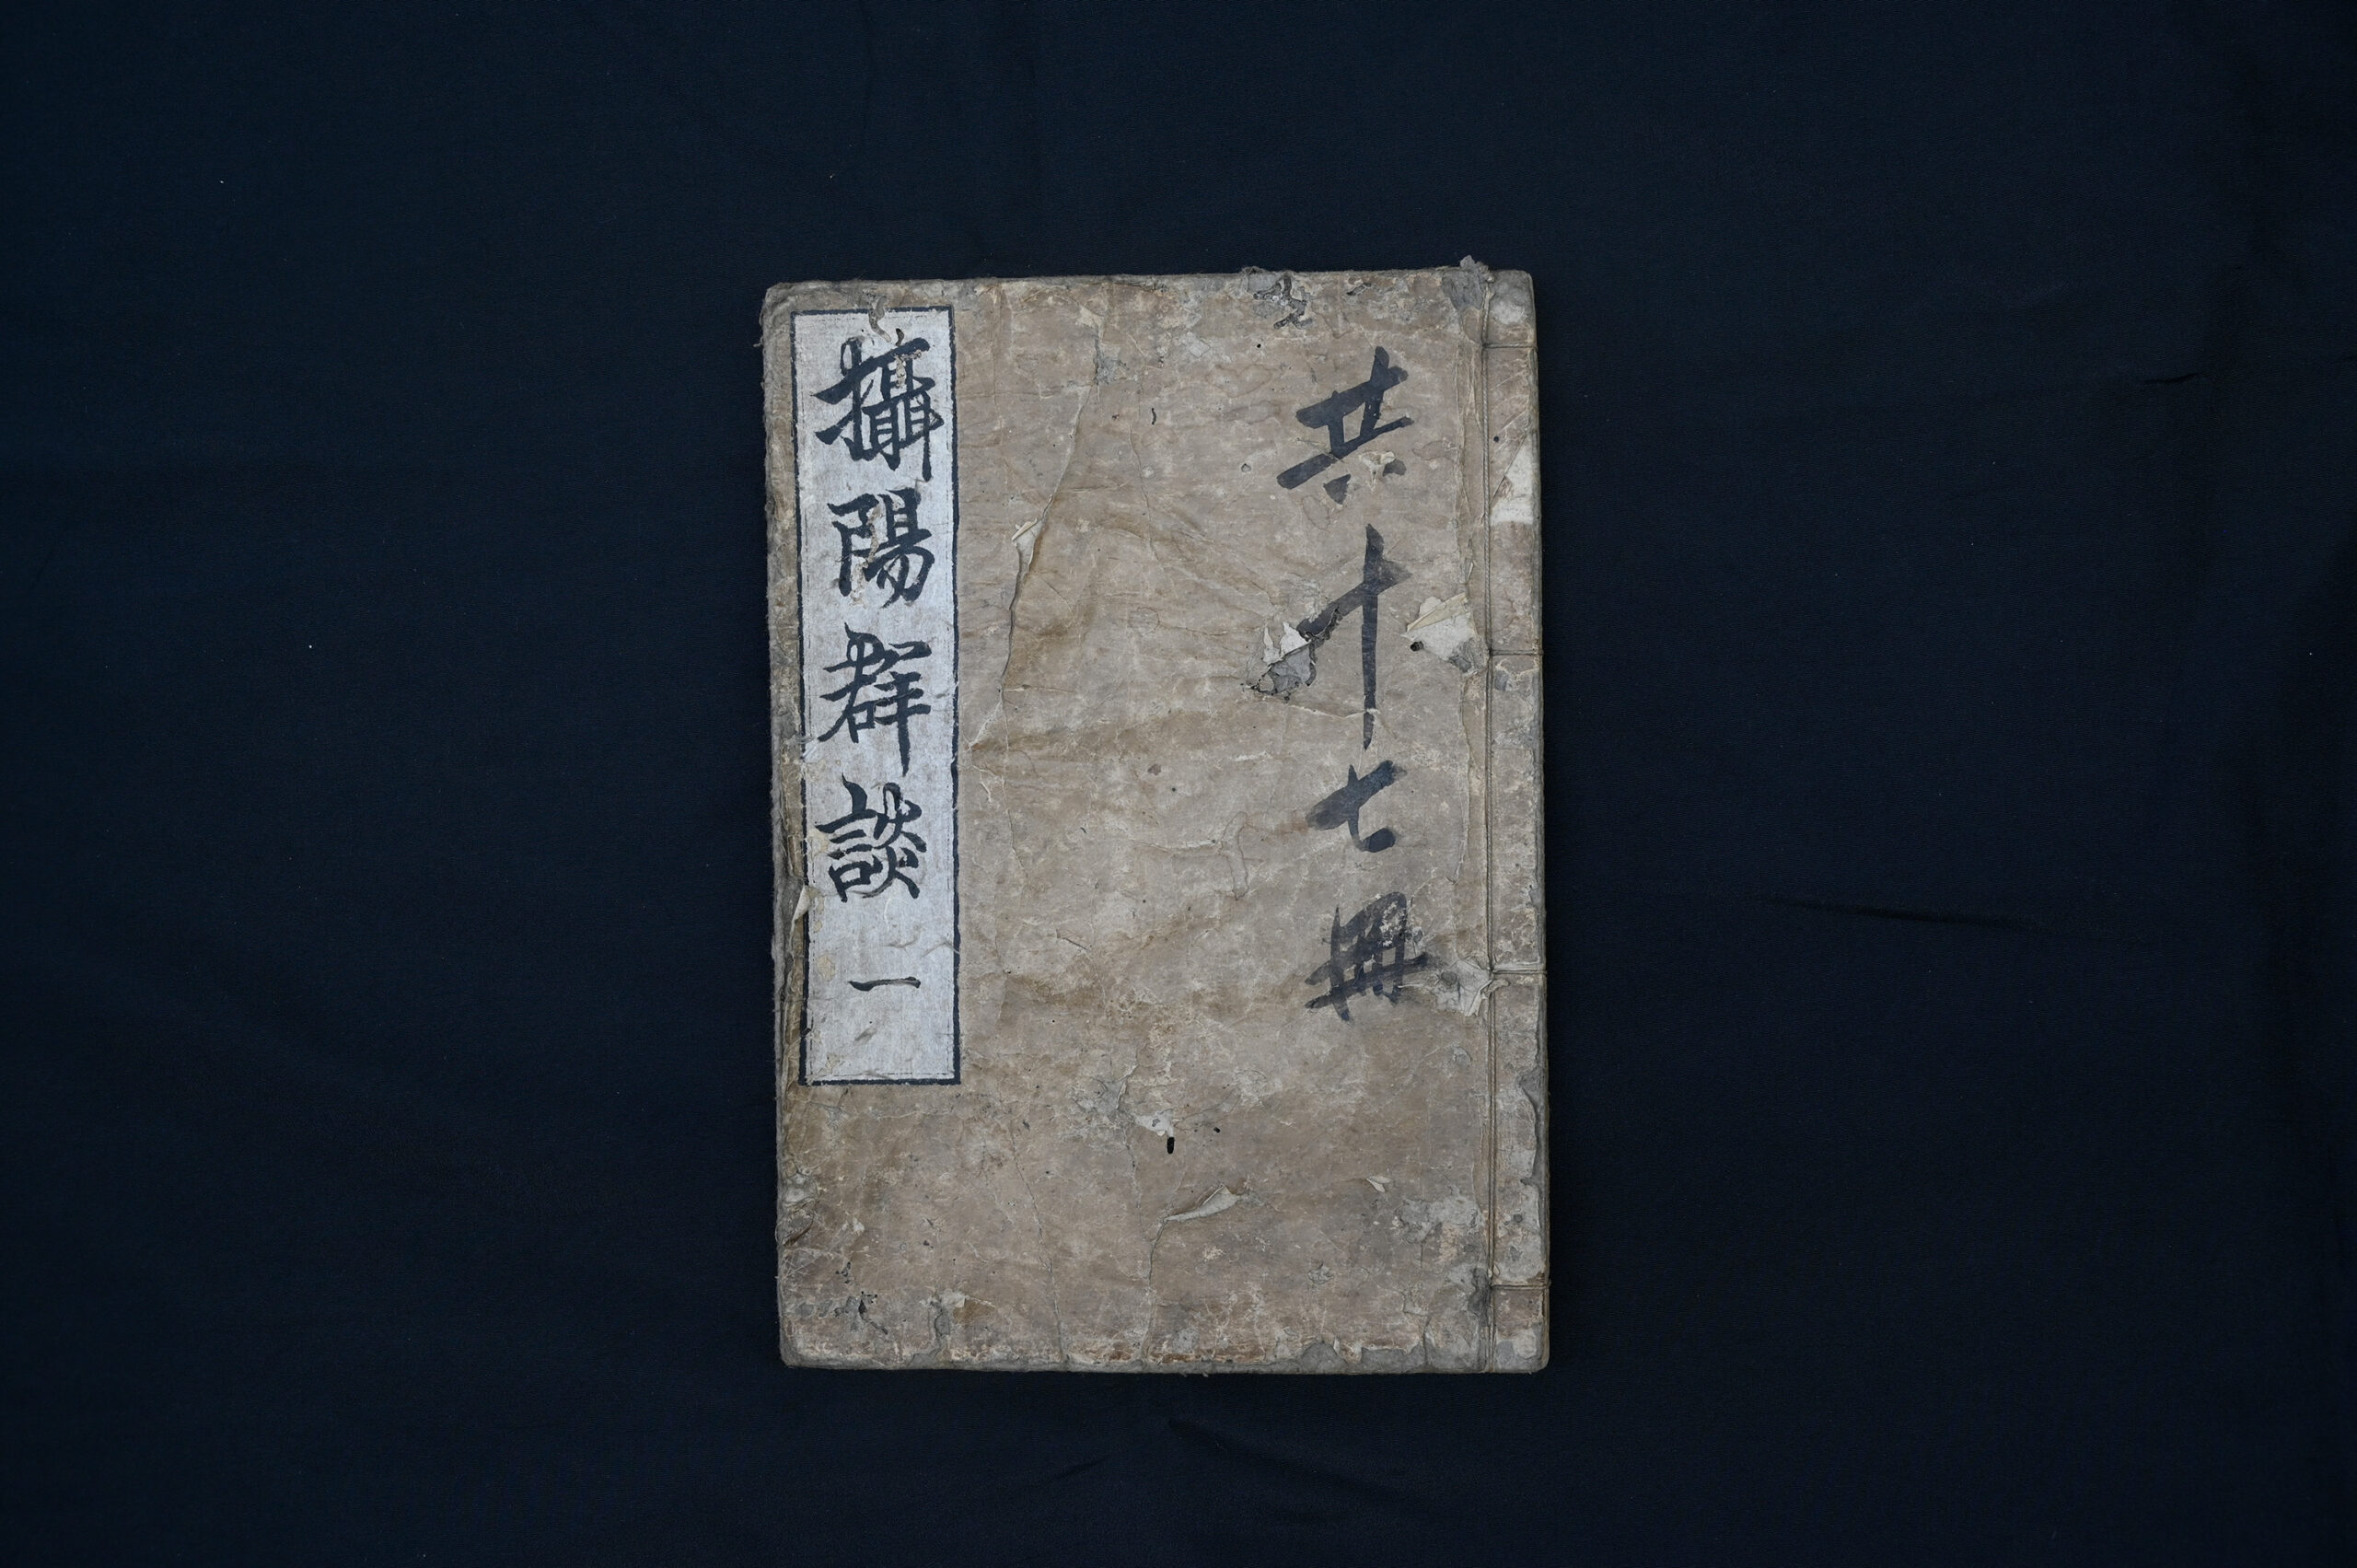 共十七冊
攝陽群談 一